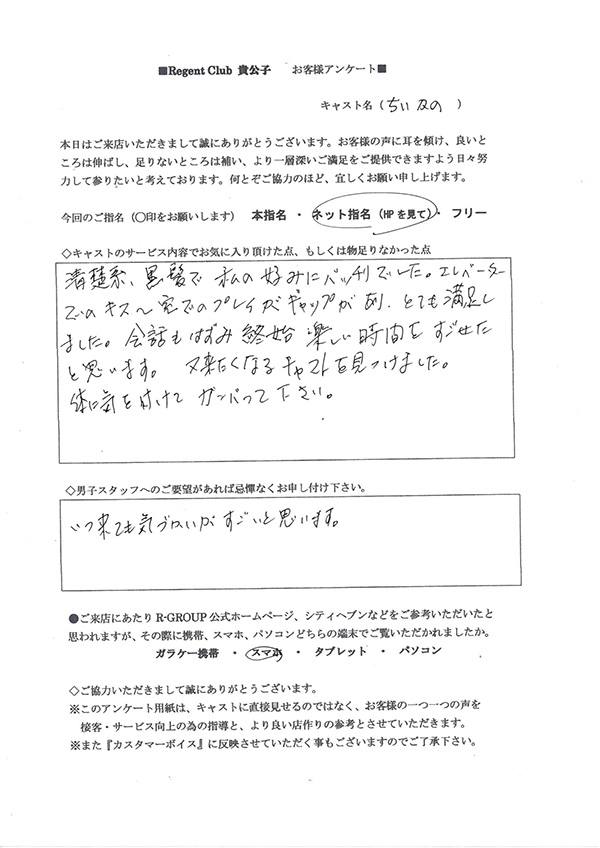 ■Regent Club 貴公子　お客様アンケート■
キャスト名（ちい なの ）
本日はご来店いただきまして誠にありがとうございます。お客様の声に耳を傾け、良いと
ころは伸ばし、足りないところは補い、より一層深いご満足をご提供できますよう日々努
力して参りたいと考えております。何とぞご協力のほど、宜しくお願い申し上げます。
今回のご指名（〇印をお願いします） 本指名 ・ ネット指名（HPを見て）・ フリー
◇キャストのサービス内容でお気に入り頂けた点、もしくは物足りなかった点
清楚系、黒髪で 私の好みにバッチリでした。エレベーター
でのキス～室でのプレイがギャップがあり、とても満足し
ました。会話もはずみ 終始 楽しい時間をすごせた
と思います。 又来たくなるキャストを見つけました。
体に気を付けて ガンバって下さい。
◇男子スタッフへのご要望があれば忌憚なくお申し付け下さい。
いつ来ても気づかいがすごいと思います。
●ご来店にあたり R-GROUP 公式ホームページ、シティヘブンなどをご参考いただいたと
思われますが、その際に携帯、スマホ、パソコンどちらの端末でご覧いただかれましたか。
ガラケー携帯 ・ スマホ ・ タブレット ・ パソコン
◇ご協力いただきまして誠にありがとうございます。
※このアンケート用紙は、キャストに直接見せるのではなく、お客様の一つ一つの声を
接客・サービス向上の為の指導と、より良い店作りの参考とさせていただきます。
※また『カスタマーボイス』に反映させていただく事もございますのでご了承下さい。